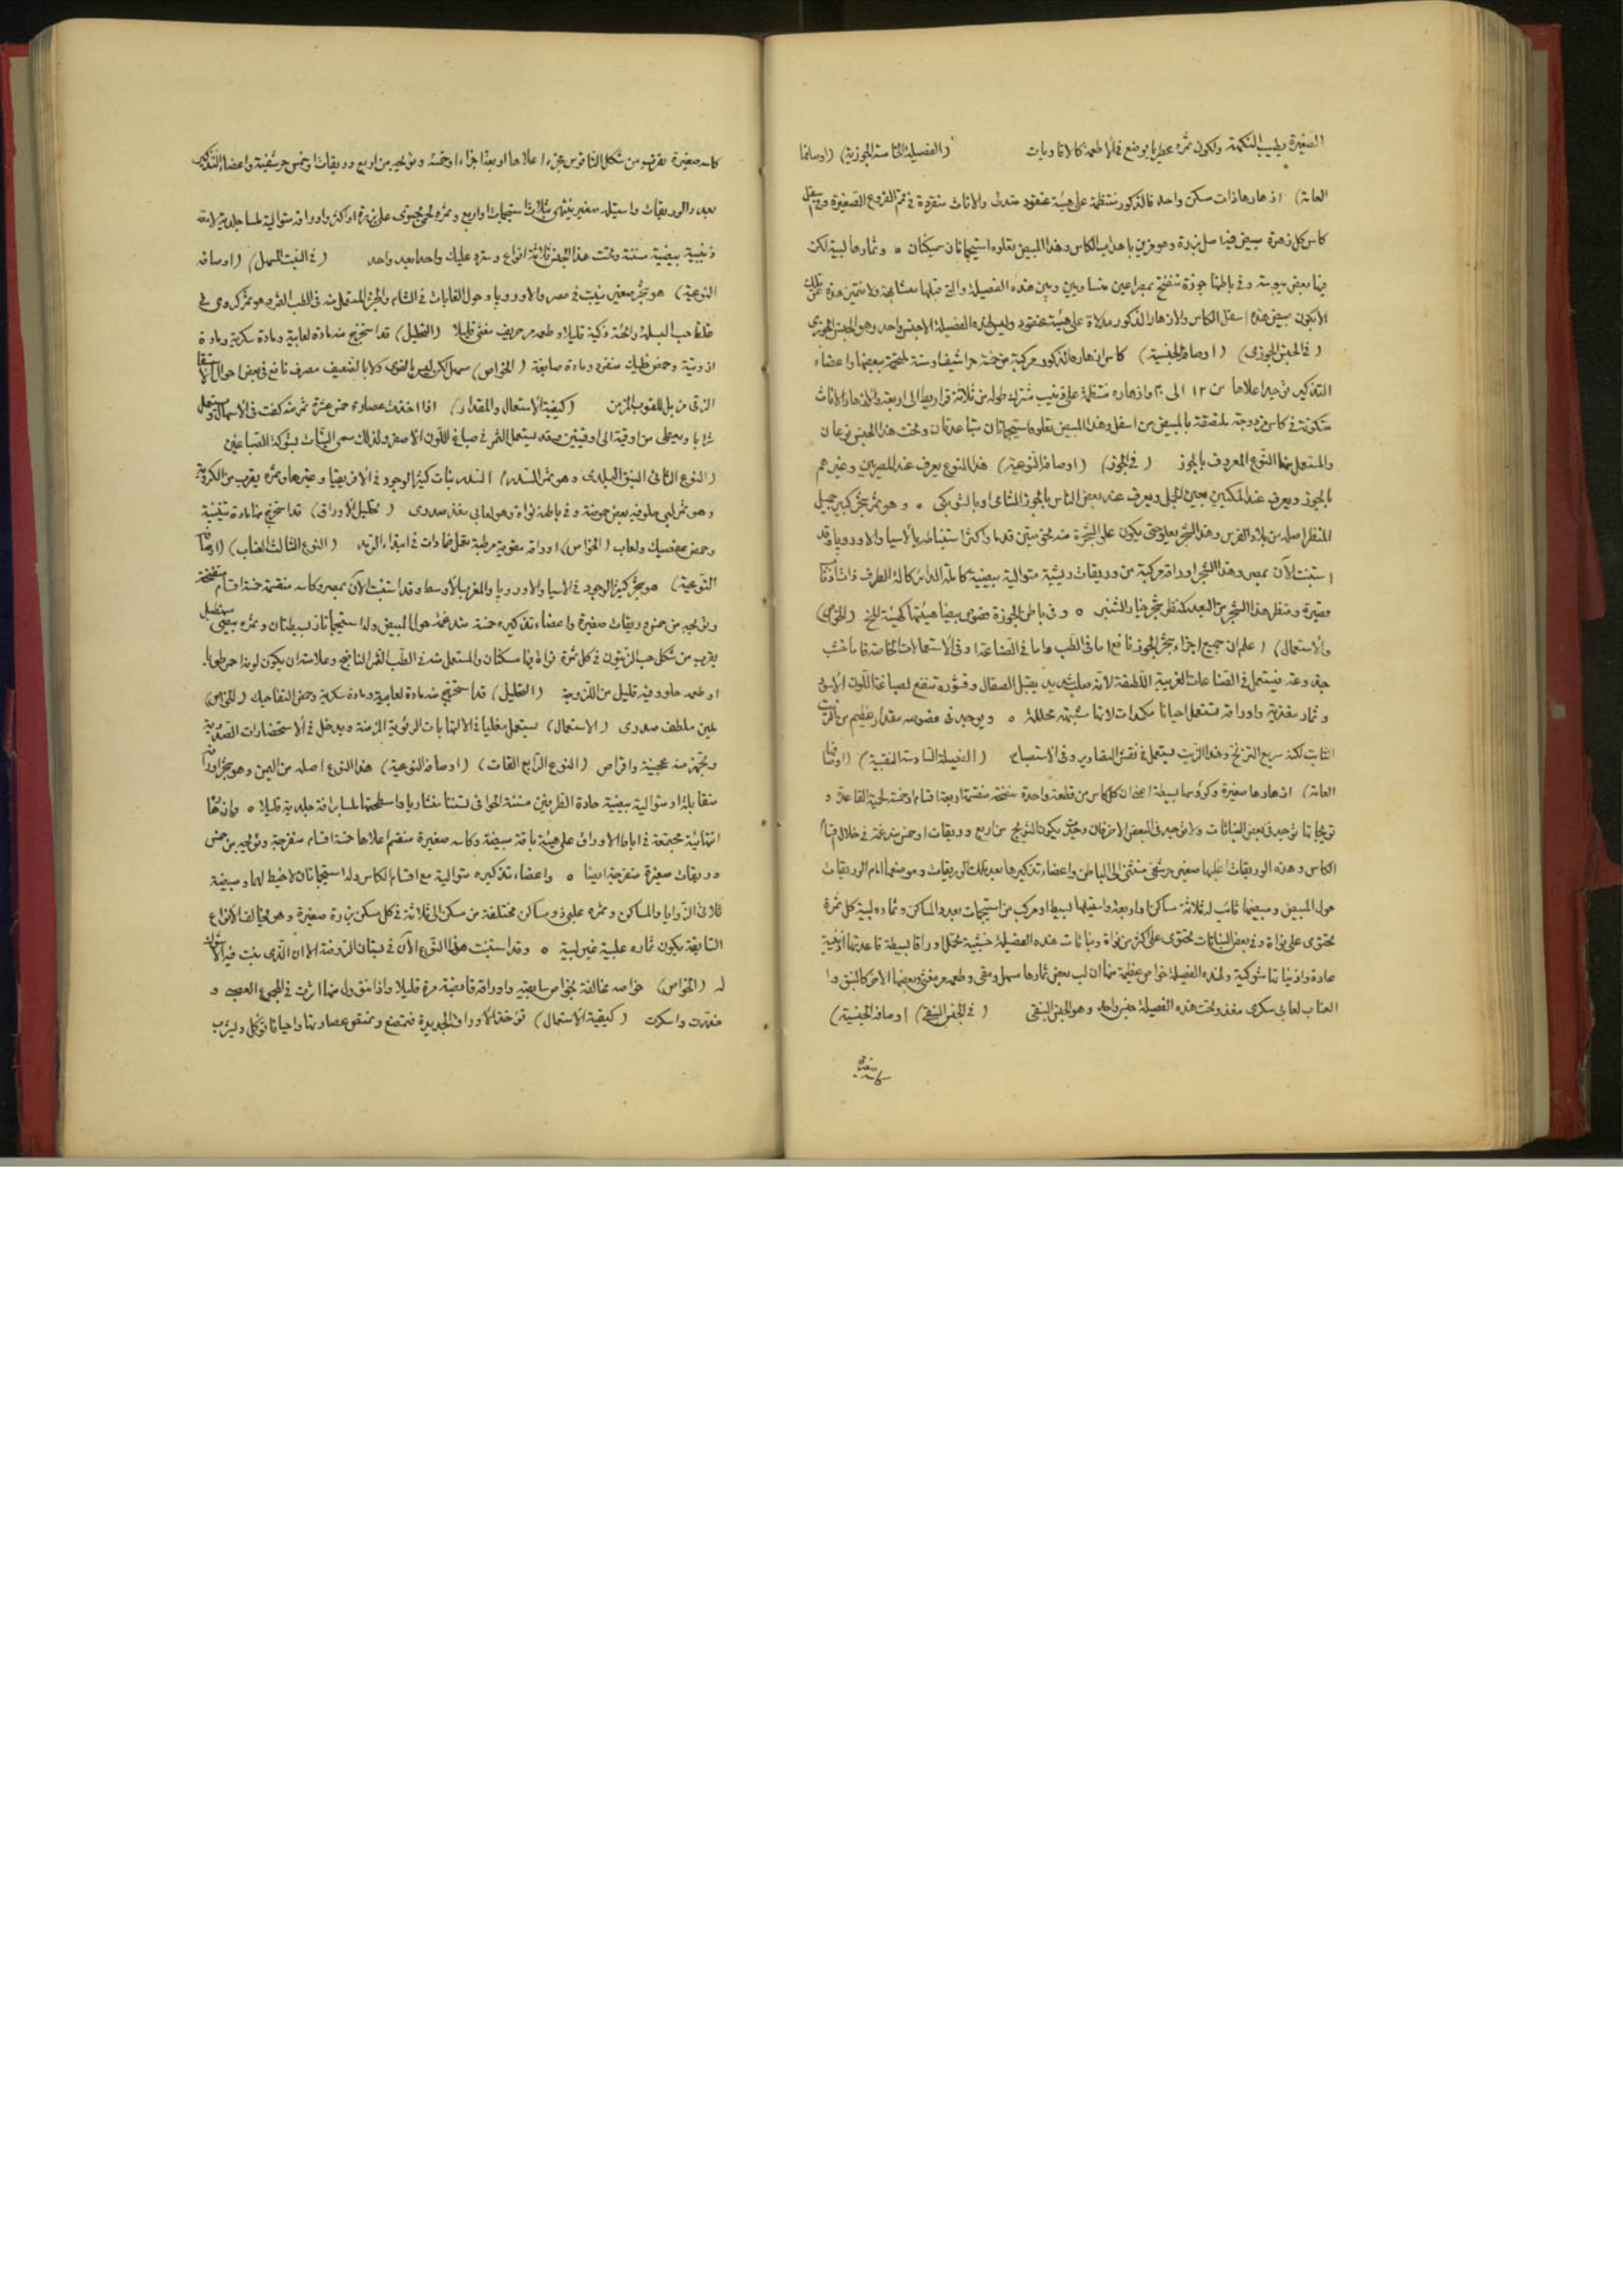 الصغيرة وتطييب النكهة ولكون ثمره عطريا يوضع في الاطعمة كالافاويات (الفصيلة الخامسة الجوزية) (اوصافها
العامة) ازهارها ذات سكن واحد فالذكور منتظمة على هيئة عنقود متدل والاناث منفردة في قمم الفروع الصغيرة وفي اسفل
كاس كل زهرة مبيض فيه اصل بزرة وهو مزين باهداب الكاس وهذا المبيض تعلوه استيجماتان سميكتان ه وثمارها لبية لكن
فيها بعض يبوسة وفي باطنها جوزة تنفتح بمصراعين متساويين وبين هذه الفصيلة والتي قبلها مشابهة ولا تتميز هذه عن تلك
الا بكون مبيض هذه اسفل الكاس والازهار الذكور مدلاة على هيئة عنقود وليس لهذه الفصيلة الا جنس واحد وهو الجنس الجوزي
(في الجنس الجوزي) (اوصافه الجنسية) كاس ازهاره الذكور مركبة من خمسة حراشيف او ستة ملتحمة ببعضها واعضاء
التذكير توجد اعلاها من ١٢ الى ٢٠ وازهاره منتظمة على قضيب مشترك طوله من ثلاثة قراريط الى اربعة والازهار الاناث
متكونة في كاس مزدوجة ملتصقة بالمبيض من اسفل وهذا المبيض تعلوه استيجماتان متباعدتان وتحت هذا الجنس نوعان
والمستعمل منها النوع المعروف بالجوز (في الجوز) (اوصافه النوعية) هذا النوع يعرف عند المصريين وغيرهم
بالجوز ويعرف عند المكيين بعين الجمل ويعرف عند بعض الناس بالجوز الشامي او بالشوبكي ه وهو ثمر شجر كبير جميل
المنظر اصله من بلاد الفرس وهذا الشجر يعلو حتى يكون علو الشجرة منه نحو ستين قدما واكثر استنباته بالاسيا والاوروپا وقد
استنبت الآن بمصر وهذا الشجر اوراقه مركبة من وريقات ريشية متوالية بيضية كاملة الدائر كالة الطرف ذات اذناب
قصيرة ومنظر هذا الشجر من البعد كمنظر شجر خيار الشنبر ه وفي باطن الجوزة فصوص بيضا هيئتها كهيئة المخ (الخواص
والاستعمال) اعلم ان جميع اجزاء شجر الجوز نافع اما في الطب واما في الصناعة او في الاستعمالات الخاصة فاما خشب
جذوعه فيستعمل في الصناعات الغريبة اللطيفة لانه صلب شديد يقبل الصقال وقشوره تنفع لصباغة اللون الاسود
وثماره مغذية واوراقه تستعمل احيانا مكمدات لانها منبهة محللة ه ويوجد في فصوصه مقدار عظيم من الزيت
الثابت لكنه سريع التزنخ وهذا الزيت يستعمل في نقش التصاوير وفي الاستصباح (الفصيلة السادسة النبقية) (اوصافها
العامة) ازهارها صغيرة وكؤوسها بسيطة اعني ان كل كاس من قطعة واحدة منفتحة منقسمة اربعة اقسام او خمسة لحمية القاعدة و
تويجاتها توجد في بعض النباتات ولا توجد في البعض الاخر فان وجدت يكون التويج من اربع وريقات او خمس مندغمة في خلال اقسام
الكاس وهذه الوريقات اغلبها صغير حرشفي منثني الى الباطن واعضاء تذكيرها بعدد تلك الوريقات وموضعها امام الوريقات
حول المبيض ومبيضها ثابت له ثلاثة مساكن او اربعة واستيلها بسيط او مركب من استيجمات بعدد المساكن وثماره لبية كل ثمرة
تحتوي على نواة وفي بعض النباتات تحتوي على اكثر من نواة ونباتات هذه الفصيلة خشبية تحمل اوراقا بسيطة قاعدتها اذنية
عادة واذيناتها شوكية ولهذه الفصيلة خواص عظيمة منها ان لب بعض ثمارها مسهل ومقي وطعمه مر مغثي وبعضها الاخر كالنبق وا
العناب لعابي سكري مغذ وتحت هذه الفصيلة جنس واحد وهو الجنس النبقي (في الجنس النبقي) (اوصافه الجنسية)
كاسه صغيرة
كاسه صغيرة تقرب من شكل الناقوس مجزء اعلاها اربعة اجزاء او خمسة وتويجه من اربع وريقات او خمس حرشفية واعضاء التذكير
بعدد الوريقات واستيله صغير ينتهي بثلاث استيجمات او اربع وثمره لحمي يحتوي على بزرة او اكثر واوراقه متوالية ملسا جلدية لامعة
ذنيبية بيضية مسننة وتحت هذا الجنس ثلاثة انواع وسترد عليك واحدا بعد واحد (في النبق المسهل) (اوصافه
النوعية) هو شجر صغير ينبت في مصر والاوروپا وحول الغابات في الشام والجزء المستعمل منه في الطب الثمر وهو ثمر كروي في
غلظ حب البسلة رائحته ذكية قليلا وطعمه مر حريف مغثي قليلا (التحليل) قد استخرج منه مادة لعابية ومادة سكرية ومادة
ازوتية وحمض خليك منفرد ومادة صابغة (الخواص) مسهل لكن ليس بالقوي ولا بالضعيف مصرف نافع في بعض احوال الاستسقا
الزقي مزيل للقوب المزمن (كيفية الاستعمال والمقدار) اذا اخذت عصارة خمس عشرة ثمرة منه كفت في الاسهال ويستعمل
شرابا ويعطى من اوقية الى اوقيتين وقد يستعمل الثمر في صباغ اللون الاصفر ولذلك سمي النبات بشوكة الصباغين
(النوع الثاني النبق البلدي وهو ثمر السدر) السدر نبات كثير الوجود في الافريقيا وغيرها وثمره يقرب من الكروية
وهو ثمر لبي حلو فيه بعض حموضة وفي باطنه نواة وهو لعابي مغذ صدري (تحليل الاوراق) قد استخرج منها مادة تنينية
وحمض عفصيك ولعاب (الخواص) اوراقه مقوية مرطبة تعمل ضمادات في ابتداء الرمد (النوع الثالث العناب) (اوصافه
النوعية) هو شجر كثير الوجود في الاسيا والاوروپا والمغرب الاوسط وقد استنبت الآن بمصر وكاسه منقسمة خمسة اقسام منفتحة
وتويجه من خمس وريقات صغيرة واعضاء تذكيره خمسة مندغمة حول المبيض وله استيجماتان بسيطتان وثمره بيضي مستطيل
يقرب من شكل حب الزيتون في كل ثمرة نواة فيها مسكنان والمستعمل منه في الطب الثمر الناضج وعلامته ان يكون لونه احمر طوبيا
وطعمه حلو وفيه قليل من اللزوجة (التحليل) قد استخرج منه مادة لعابية ومادة سكرية وحمض التفاحيك (الخواص)
ملين ملطف صدري (الاستعمال) يستعمل مغليا في الالتهابات الرئوية المزمنة ويدخل في الاستحضارات الصدرية
ويجهز منه عجينة واقراص (النوع الرابع القات) (اوصافه النوعية) هذا النوع اصله من اليمن وهو شجر اوراقه
متقابلة او متوالية بيضية حادة الطرفين مسننة الحوافي تسننا منشاريا واسطحتها ملسا براقة جلدية قليلا ه وازهارها
انتهائية مجتمعة في اباط الاوراق على هيئة باقة مبيضة وكاسه صغيرة منقسم اعلاها خمسة اقسام منفرجة وتويجه من خمس
وريقات صغيرة منفرجة ايضا ه واعضاء تذكيره متوالية مع اقسام الكاس وله استيجماتان لا خيط لهما ومبيضه
ثلاثي الزوايا والمساكن وثمره علبي ذو مساكن مختلفة من سكن الى ثلاثة في كل سكن بزرة صغيرة وهو مخالف الانواع
السابقة بكون ثماره علبية غير لبية ه وقد استنبت هذا النوع الآن في بستان الروضة الا ان الذي ينبت فيه لا اثر
له (الخواص) خواصه مخالفة لخواص سابقيه واوراقه قابضة مرة قليلا واذا تنوول منها اثرت في المجموع العصبي و
خدرت واسكرت (كيفية الاستعمال) تؤخذ الاوراق الجديدة فتمضغ وتمتص عصارتها واحيانا تؤكل ويشرب